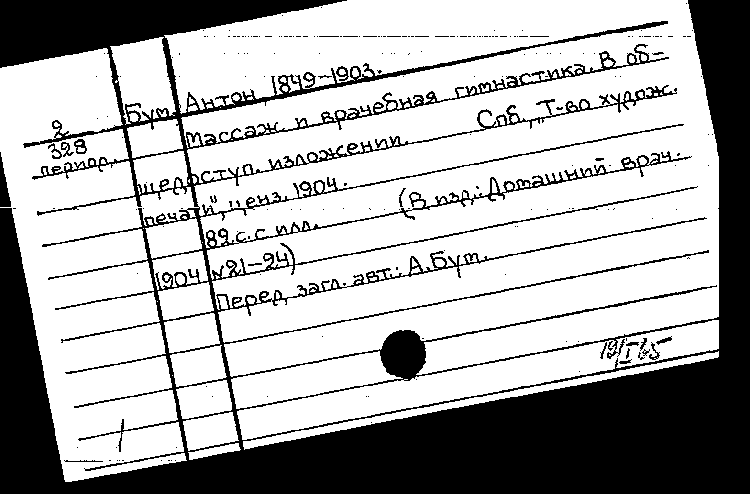 Бум, Антон, 1849-1903.
2
328
период.
Массаж и врачебная гимнастика. В об-
щедоступ. изложении. Спб., „Т-во худож.
печати", ценз. 1904.
89.с. с илл. (В изд.: Домашний врач.
1904 №21-24)
Перед загл. авт.: А.Бум.
19/I 65